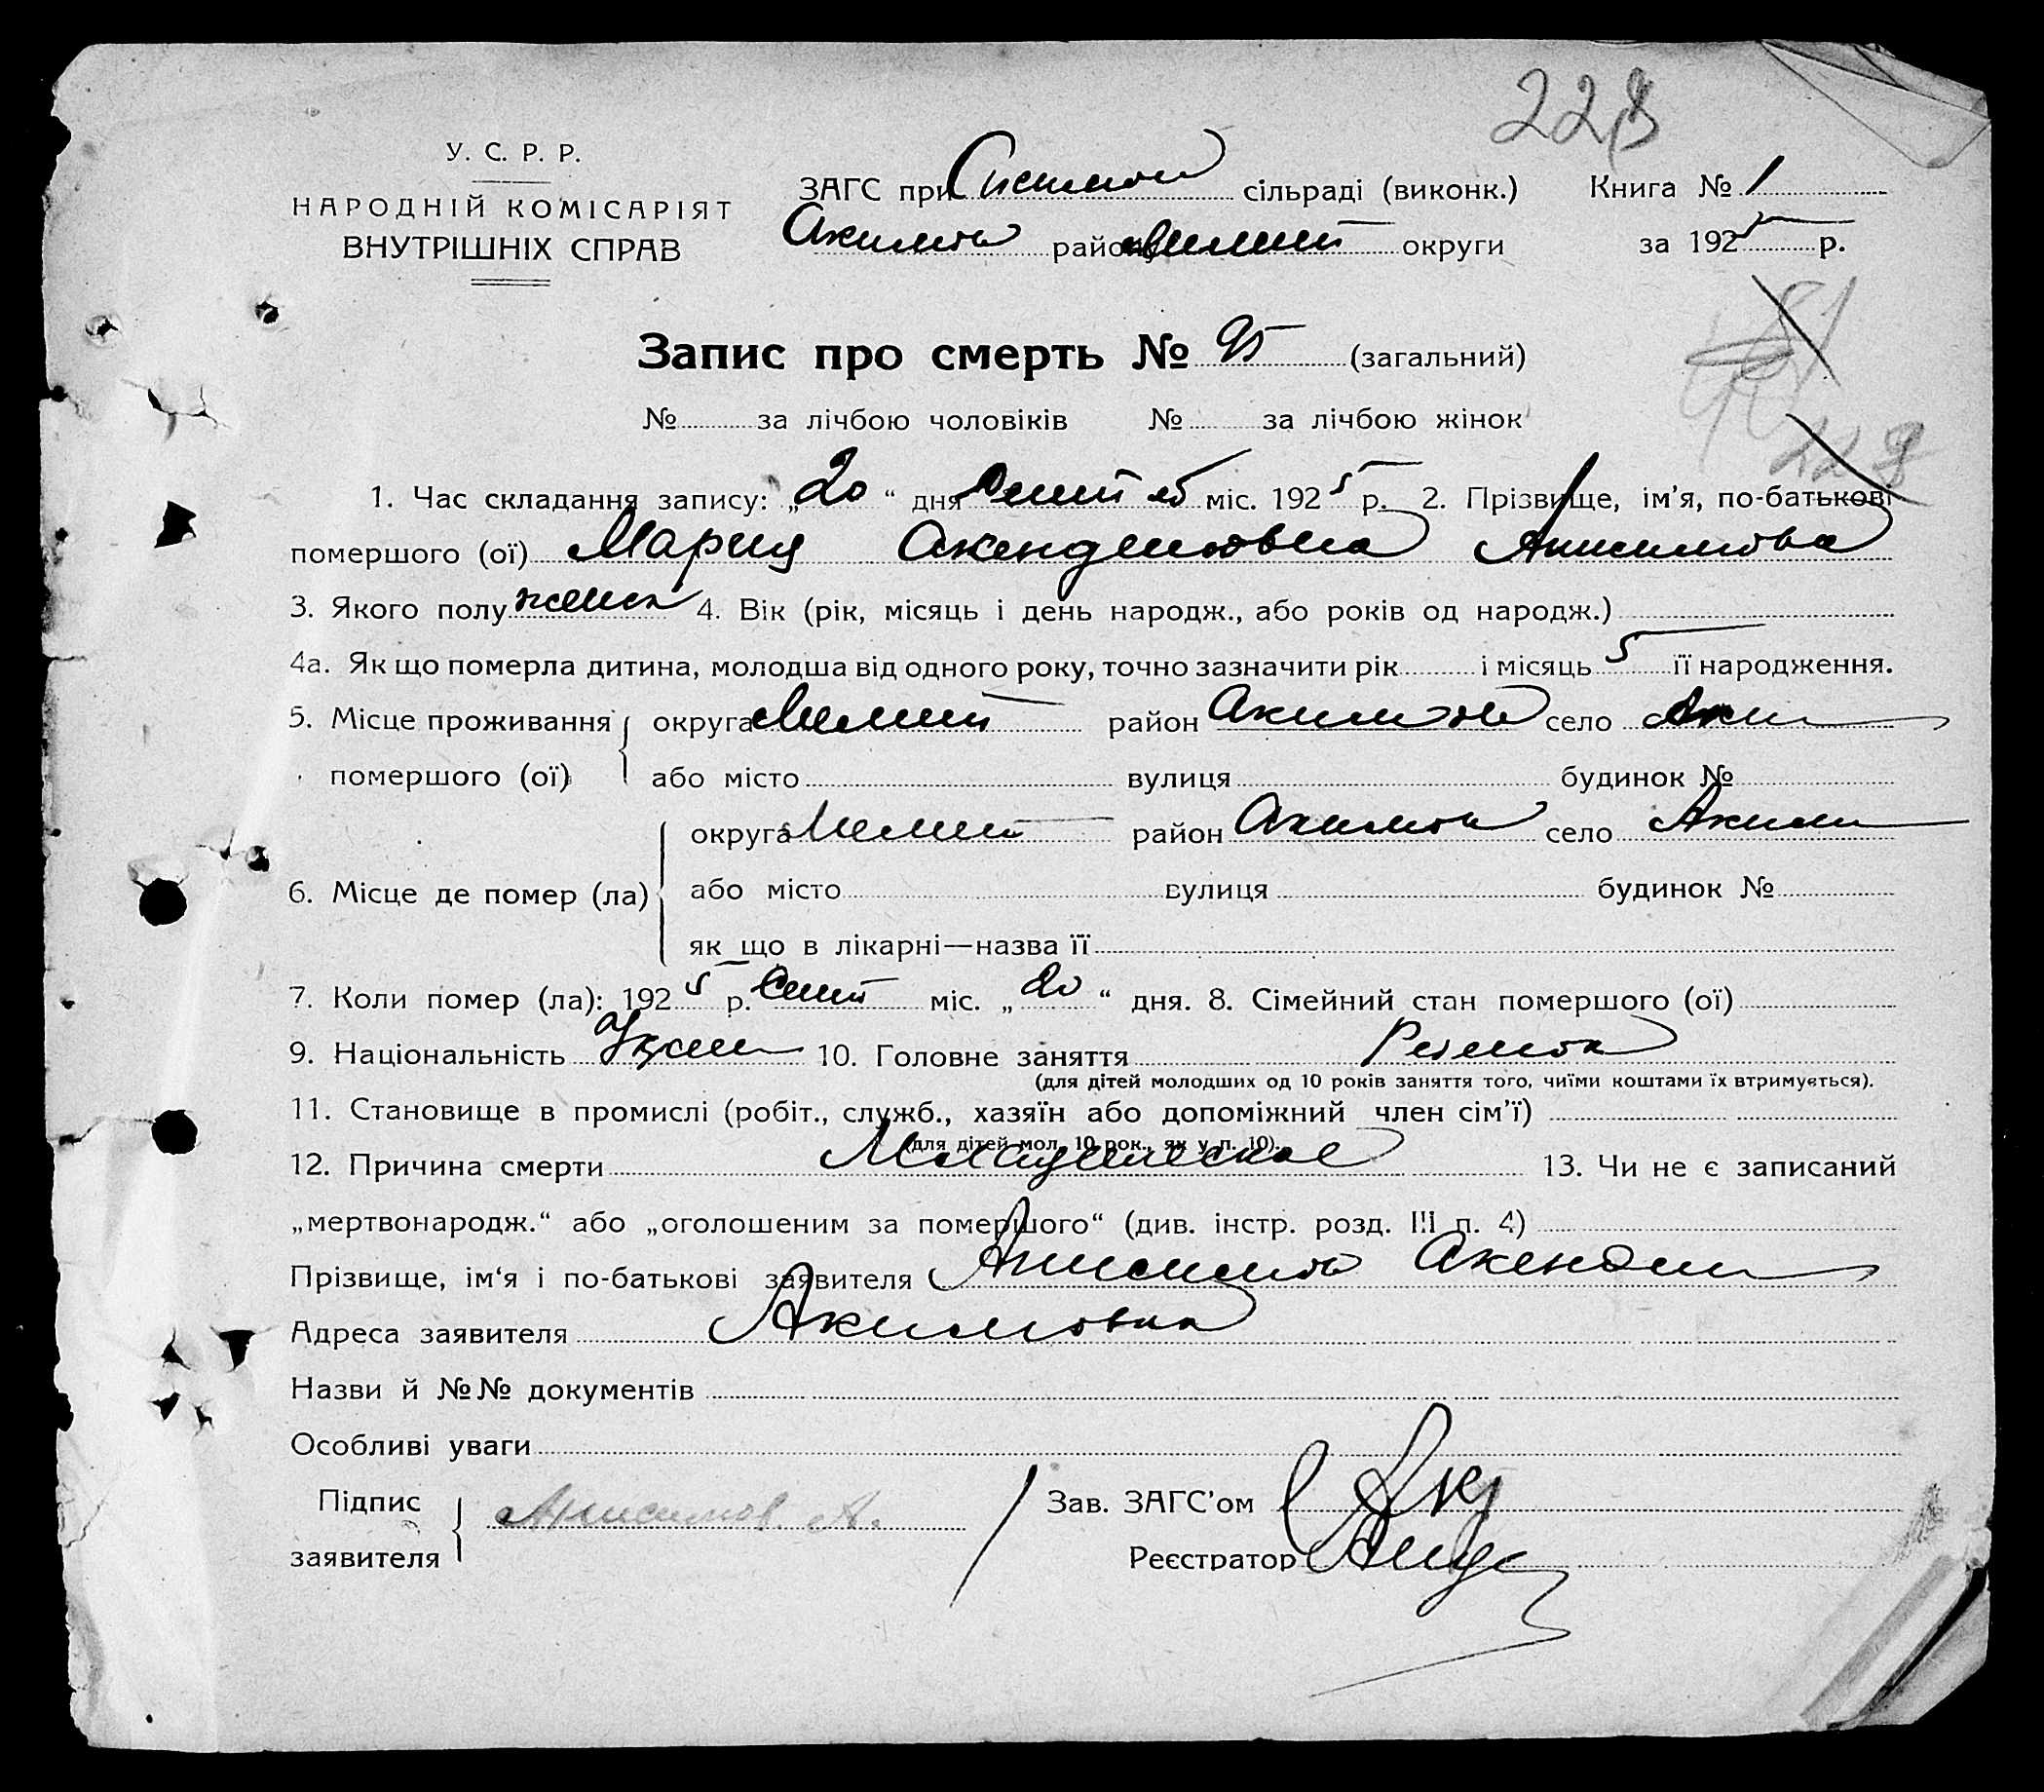 228
У. С. Р. Р.
НАРОДНІЙ КОМІСАРІЯТ
ВНУТРІШНІХ СПРАВ
ЗАГС при сільраді (виконк.) Книга № 1
Акимов району Мелит округи за 1925 р.
Запис про смерть № 95 (загальний)
№ за лічбою чоловіків № за лічбою жінок
228
1. Час складання запису: „20“ дня міс. 1925 р. 2. Прізвище, ім'я, по-батькові
помершого (ої) Мария Анисимова
3. Якого полу женск 4. Вік (рік, місяць і день народж., або років од народж.)
4а. Як що померла дитина, молодша від одного року, точно зазначити рік і місяць 5 її народження.
5. Місце проживання округа Мелит район Акимов село Аким
помершого (ої) або місто вулиця будинок №
округа Мелит район Акимов село Аким
6. Місце де помер (ла) або місто вулиця будинок №
як що в лікарні—назва її
7. Коли помер (ла): 1925 р. Сент міс. „20“ дня. 8. Сімейний стан помершого (ої)
9. Національність 10. Головне заняття
(для дітей молодших од 10 років заняття того, чиїми коштами їх втримується).
11. Становище в промислі (робіт., служб., хазяїн або допоміжний член сім'ї)
(для дітей мол. 10 рок., як у п. 10).
12. Причина смерти 13. Чи не є записаний
„мертвонародж.“ або „оголошеним за помершого“ (див. інстр. розд. III п. 4)
Прізвище, ім'я і по-батькові заявителя Анисимов
Адреса заявителя Акимовка
Назви й №№ документів
Особливі уваги
Підпис
заявителя Анисимов А.
Зав. ЗАГС'ом
Реєстратор